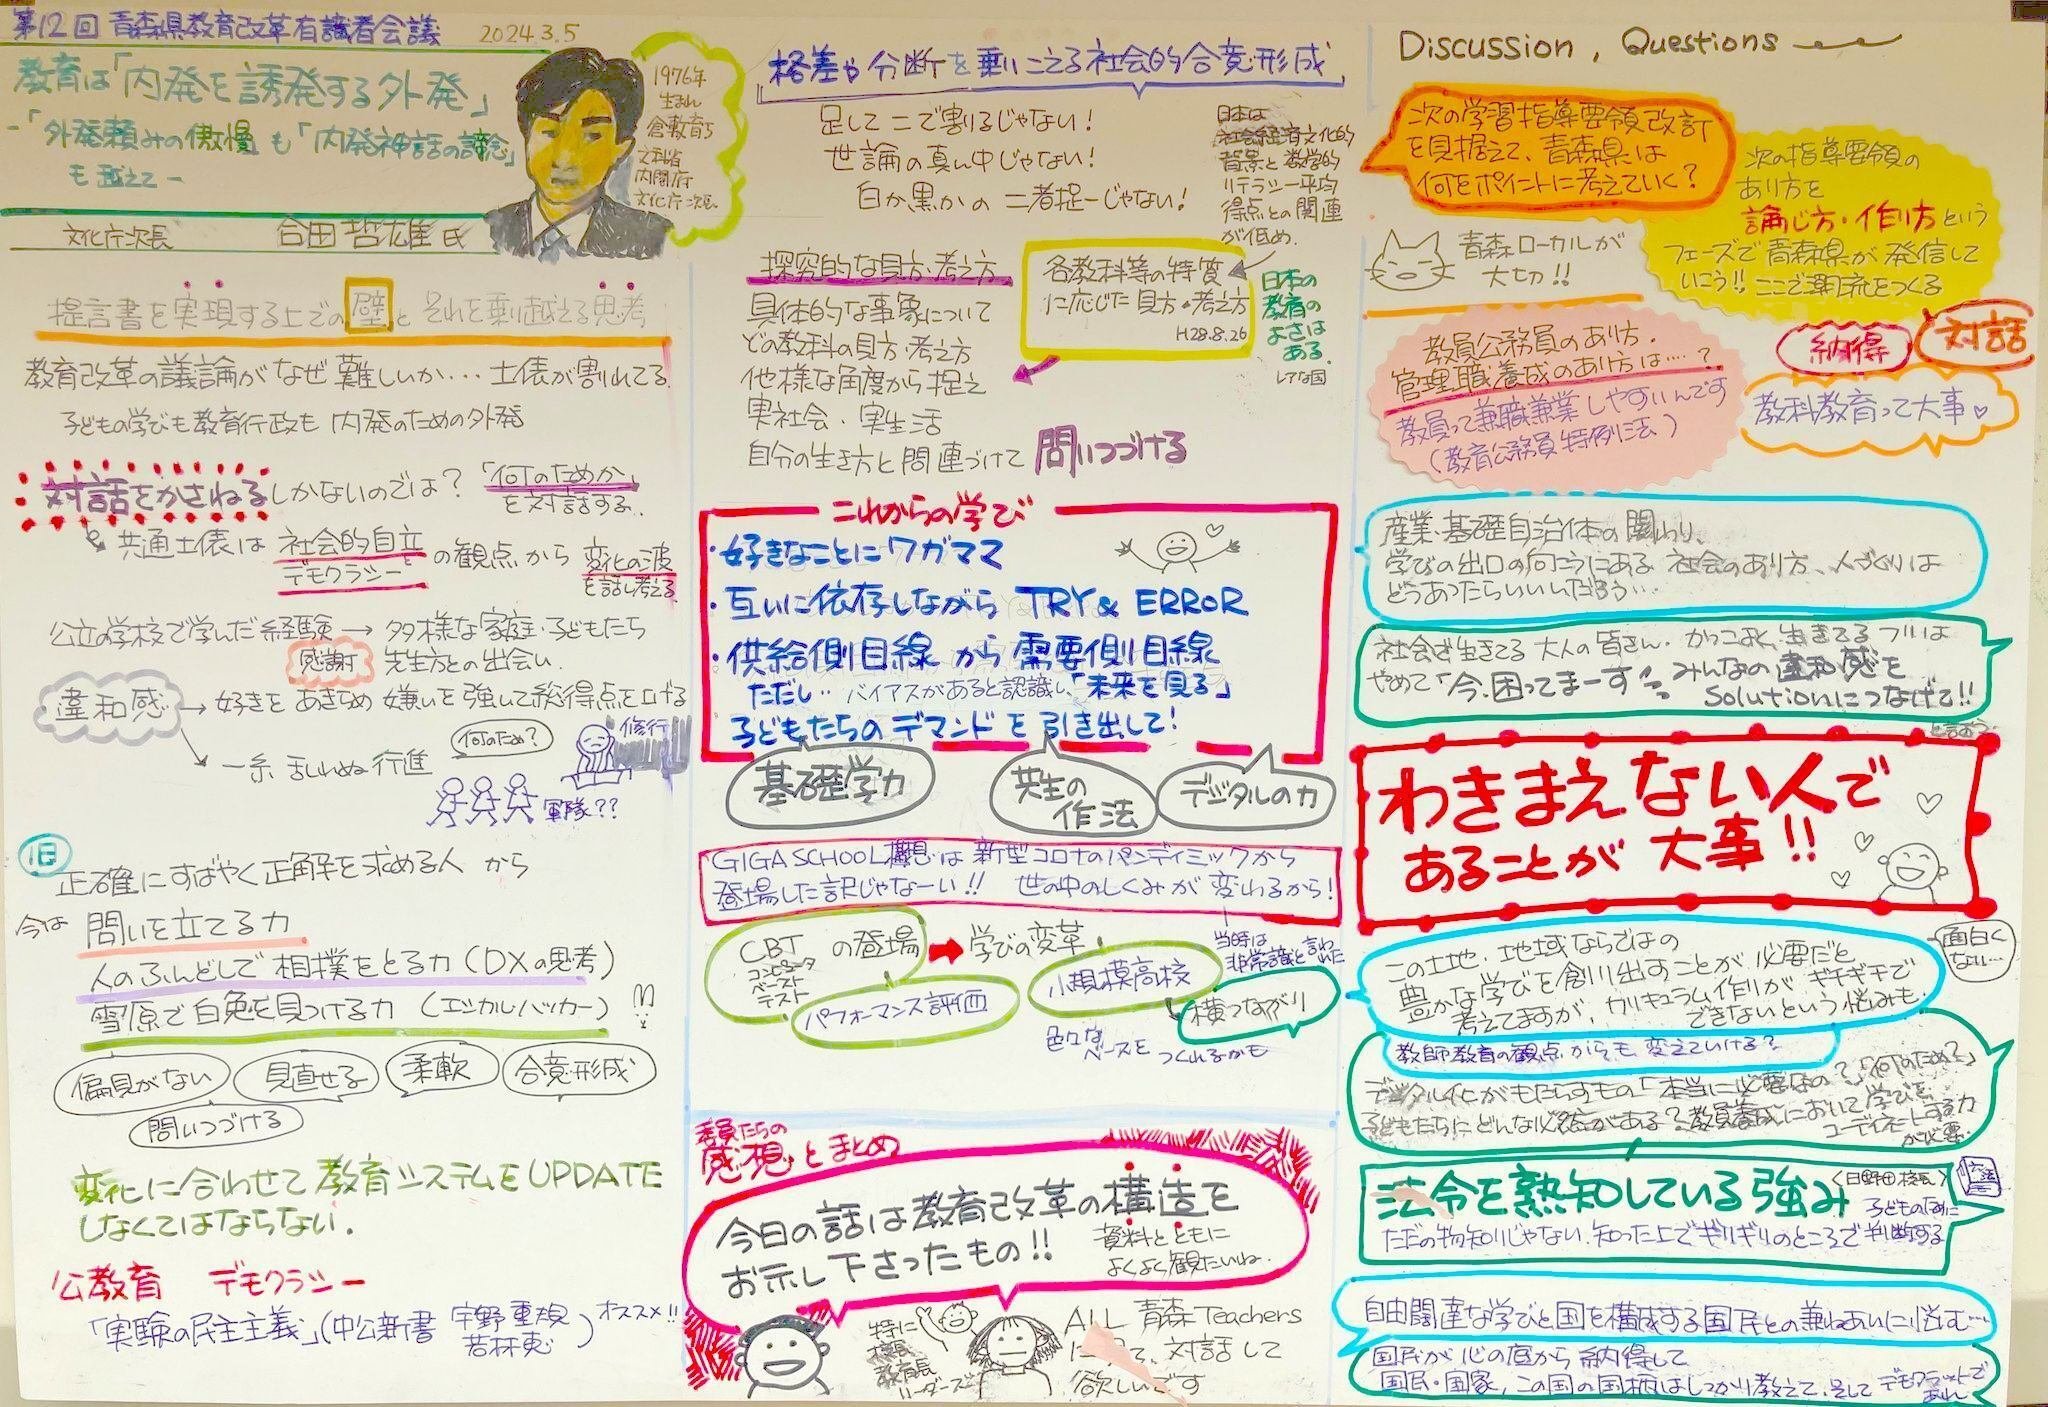 第12回 青森県教育改革有識者会議 2024.3.5
教育は「内発を誘発する外発」
-「外発頼みの傲慢」も「内発神話の諦念」
も越えて-
文化庁次長 合田哲雄氏
1976年
生まれ
倉敷育ち
文科省
内閣府
文化庁次長
提言書を実現する上での壁とそれを乗り越える思考
教育改革の議論がなぜ難しいか…土俵が割れてる
子どもの学びも教育行政も 内発のための外発
対話をかさねるしかないのでは？「何のためか」
を対話する..
共通土俵は 社会的自立と
デモクラシー の観点から 変化の波
を話し考える
公立の学校で学んだ経験→多様な家庭・子どもたち
感謝 先生方との出会い.
違和感→好きをあきらめ嫌いを強いて総得点を上げる
一糸乱れぬ行進
何のため？
修行
軍隊??
旧
正確にすばやく正解を求める人 から
今は 問いを立てる力
人のふんどしで相撲をとる力(DXの思考)
雪原で白兎を見つける力(エシカルハッカー)
偏見がない
見直せる
柔軟
合意形成
問いつづける
変化に合わせて教育システムをUPDATE
しなくてはならない.
公教育 デモクラシー
「実験の民主主義」(中公新書 宇野重規
若林恵) オススメ!!
格差や分断を乗りこえる社会的合意形成
足して二で割るじゃない!
世論の真ん中じゃない!
白か黒かの二者択一じゃない!
日本は
社会経済文化的
背景と数学的
リテラシー平均
得点との関連
が低め.
探究的な見方・考え方
具体的な事象について
どの教科の見方・考え方
他様な角度から捉え
実社会・実生活
自分の生き方と問連づけて 問いつづける
各教科等の特質
に応じた見方・考え方
H28.8.26
日本の
教育の
よさは
ある.
レアな国
これからの学び
・好きなことにワガママ
・互いに依存しながら TRY & ERROR
・供給側目線から需要側目線
ただし… バイアスがあると認識し、「未来を見る」
子どもたちのデマンドを引き出して!
基礎学力
共生の
作法
デジタルの力
GIGA SCHOOL構想は新型コロナのパンディミックから
登場した訳じゃなーい!! 世の中のしくみが変わるから!
CBTの登場
コンピュータ
ベースト
テスト
→学びの変革
パフォーマンス評価
小規模高校
当時は
非常識と言われた
横つながり
色々な
ベースを つくれるかも
委員たちの
感想とまとめ
今日の話は教育改革の構造を
お示し下さったもの!!
資料とともに
よくよく観たいね.
特に
校長
教育長
リーダーズ
ALL 青森Teachers
対話して
欲しいです
Discussion, Questions
次の学習指導要領改訂
を見据えて、青森県は
何をポイントに考えていく？
次の指導要領の
あり方を
論じ方・作り方という
フェーズで青森県が発信して
いこう!! ここで潮流をつくる
青森ローカルが
大切!!
教員公務員のあり方.
管理職養成のあり方は….?
教員って兼職兼業しやすいんです
(教育公務員特例法)
納得
対話
教科教育って大事♡
産業・基礎自治体の関わり、
学びの出口の向こうにある社会のあり方、人づくりは
どうあったらいいいだろう…
社会で生きてる大人の皆さん.かっこよく生きてるフリは
やめて「今、困ってまーす」みんなの違和感を
Solutionにつなげて!!
と言おう
わきまえない人で
あることが大事!!
この土地・地域ならではの
豊かな学びを創り出すことが必要だと
考えてますが、カリキュラム作りがギチギチで
できないという悩みも.
面白く
ない…
教師教育の観点からも変えていける？
デジタル化がもたらすもの「本当に必要なの？」「何のため？」
子どもたちにどんな必然がある？教員養成において学びを
コーディネートする力
が必要.
法令を熟知している強み
(日野田校長)
六法
子どものために
ただの物知りじゃない.知った上でギリギリのところで判断する
自由闊達な学びと国を構成する国民との兼ねあいに悩む…
国民が心の底から納得して
国民・国家、この国の国柄はしっかり教えて、そしてデモクラットで
あれ